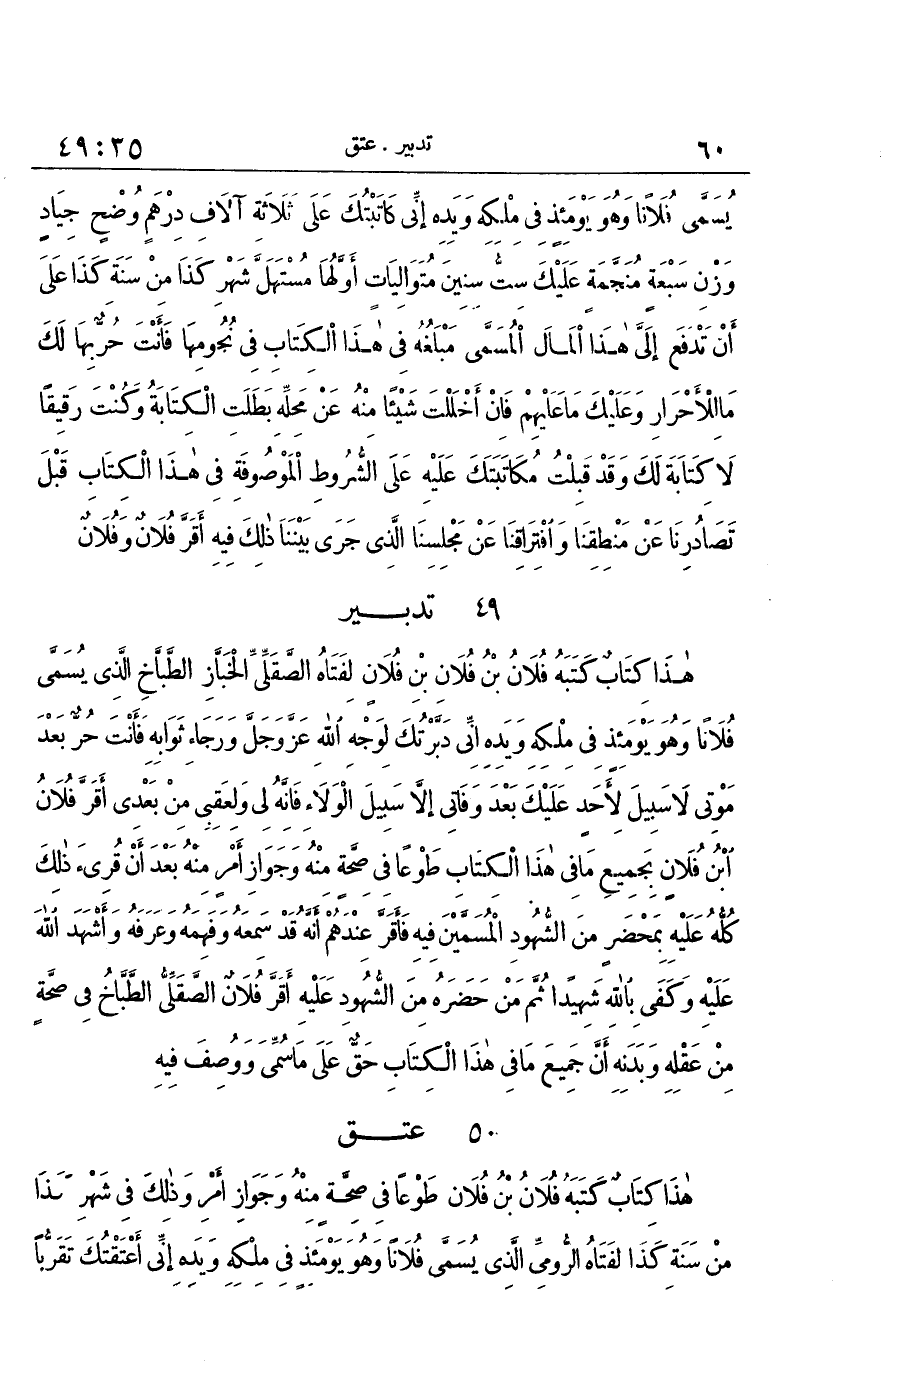 ٦٠ تدبير . عتق ٤٩:٣٥
يُسَمَّى فُلَانًا وَهُوَ يَوْمَئِذٍ فِى مُلْكِهِ وَيَدِهِ إِنِّى كَاتَبْتُكَ عَلَى ثَلَاثَةِ آلَافِ دِرْهَمٍ وُضْحٍ جِيَادٍ
وَزْنِ سَبْعَةٍ مُنَجَّمَةٍ عَلَيْكَ سِتَّ سِنِينَ مُتَوَالِيَاتٍ أَوَّلُهَا مُسْتَهَلَّ شَهْرِ كَذَا مِنْ سَنَةِ كَذَا عَلَى
أَنْ تَدْفَعَ إِلَىَّ هٰذَا الْمَالَ الْمُسَمَّى مَبْلَغُهُ فِى هٰذَا الْكِتَابِ فِى نُجُومِهَا فَأَنْتَ حُرٌّ بِهَا لَكَ
مَا لِلْأَحْرَارِ وَعَلَيْكَ مَا عَلَيْهِمْ فَإِنْ أَخْلَلْتَ شَيْئًا مِنْهُ عَنْ مَحِلِّهِ بَطَلَتِ الْكِتَابَةُ وَكُنْتَ رَقِيقًا
لَا كِتَابَةَ لَكَ وَقَدْ قَبِلْتُ مُكَاتَبَتَكَ عَلَيْهِ عَلَى الشُّرُوطِ الْمَوْصُوفَةِ فِى هٰذَا الْكِتَابِ قَبْلَ
تَصَادُرِنَا عَنْ مَنْطِقِنَا وَافْتِرَاقِنَا عَنْ مَجْلِسِنَا الَّذِى جَرَى بَيْنَنَا ذٰلِكَ فِيهِ أَقَرَّ فُلَانٌ وَفُلَانٌ
٤٩ تدبـــير
هٰذَا كِتَابٌ كَتَبَهُ فُلَانُ بْنُ فُلَانِ بْنِ فُلَانٍ لِفَتَاهُ الصَّقَلِّىِّ الْخَبَّازِ الطَّبَّاخِ الَّذِى يُسَمَّى
فُلَانًا وَهُوَ يَوْمَئِذٍ فِى مُلْكِهِ وَيَدِهِ إِنِّى دَبَّرْتُكَ لِوَجْهِ اللهِ عَزَّ وَجَلَّ وَرَجَاءِ ثَوَابِهِ فَأَنْتَ حُرٌّ بَعْدَ
مَوْتِى لَا سَبِيلَ لِأَحَدٍ عَلَيْكَ بَعْدَ وَفَاتِى إِلَّا سَبِيلَ الْوَلَاءِ فَإِنَّهُ لِى وَلِعَقِبِى مِنْ بَعْدِى أَقَرَّ فُلَانُ
ابْنُ فُلَانٍ بِجَمِيعِ مَا فِى هٰذَا الْكِتَابِ طَوْعًا فِى صِحَّةٍ مِنْهُ وَجَوَازِ أَمْرٍ مِنْهُ بَعْدَ أَنْ قُرِىءَ ذٰلِكَ
كُلُّهُ عَلَيْهِ بِمَحْضَرٍ مِنَ الشُّهُودِ الْمُسَمَّيْنَ فِيهِ فَأَقَرَّ عِنْدَهُمْ أَنَّهُ قَدْ سَمِعَهُ وَفَهِمَهُ وَعَرَفَهُ وَأَشْهَدَ اللهَ
عَلَيْهِ وَكَفَى بِاللهِ شَهِيدًا ثُمَّ مَنْ حَضَرَهُ مِنَ الشُّهُودِ عَلَيْهِ أَقَرَّ فُلَانٌ الصَّقَلِّىُّ الطَّبَّاخُ فِى صِحَّةٍ
مِنْ عَقْلِهِ وَبَدَنِهِ أَنَّ جَمِيعَ مَا فِى هٰذَا الْكِتَابِ حَقٌّ عَلَى مَا سُمِّىَ وَوُصِفَ فِيهِ
٥٠ عتـــق
هٰذَا كِتَابٌ كَتَبَهُ فُلَانُ بْنُ فُلَانٍ طَوْعًا فِى صِحَّةٍ مِنْهُ وَجَوَازِ أَمْرٍ وَذٰلِكَ فِى شَهْرِ كَذَا
مِنْ سَنَةِ كَذَا لِفَتَاهُ الرُّومِىِّ الَّذِى يُسَمَّى فُلَانًا وَهُوَ يَوْمَئِذٍ فِى مُلْكِهِ وَيَدِهِ إِنِّى أَعْتَقْتُكَ تَقَرُّبًا